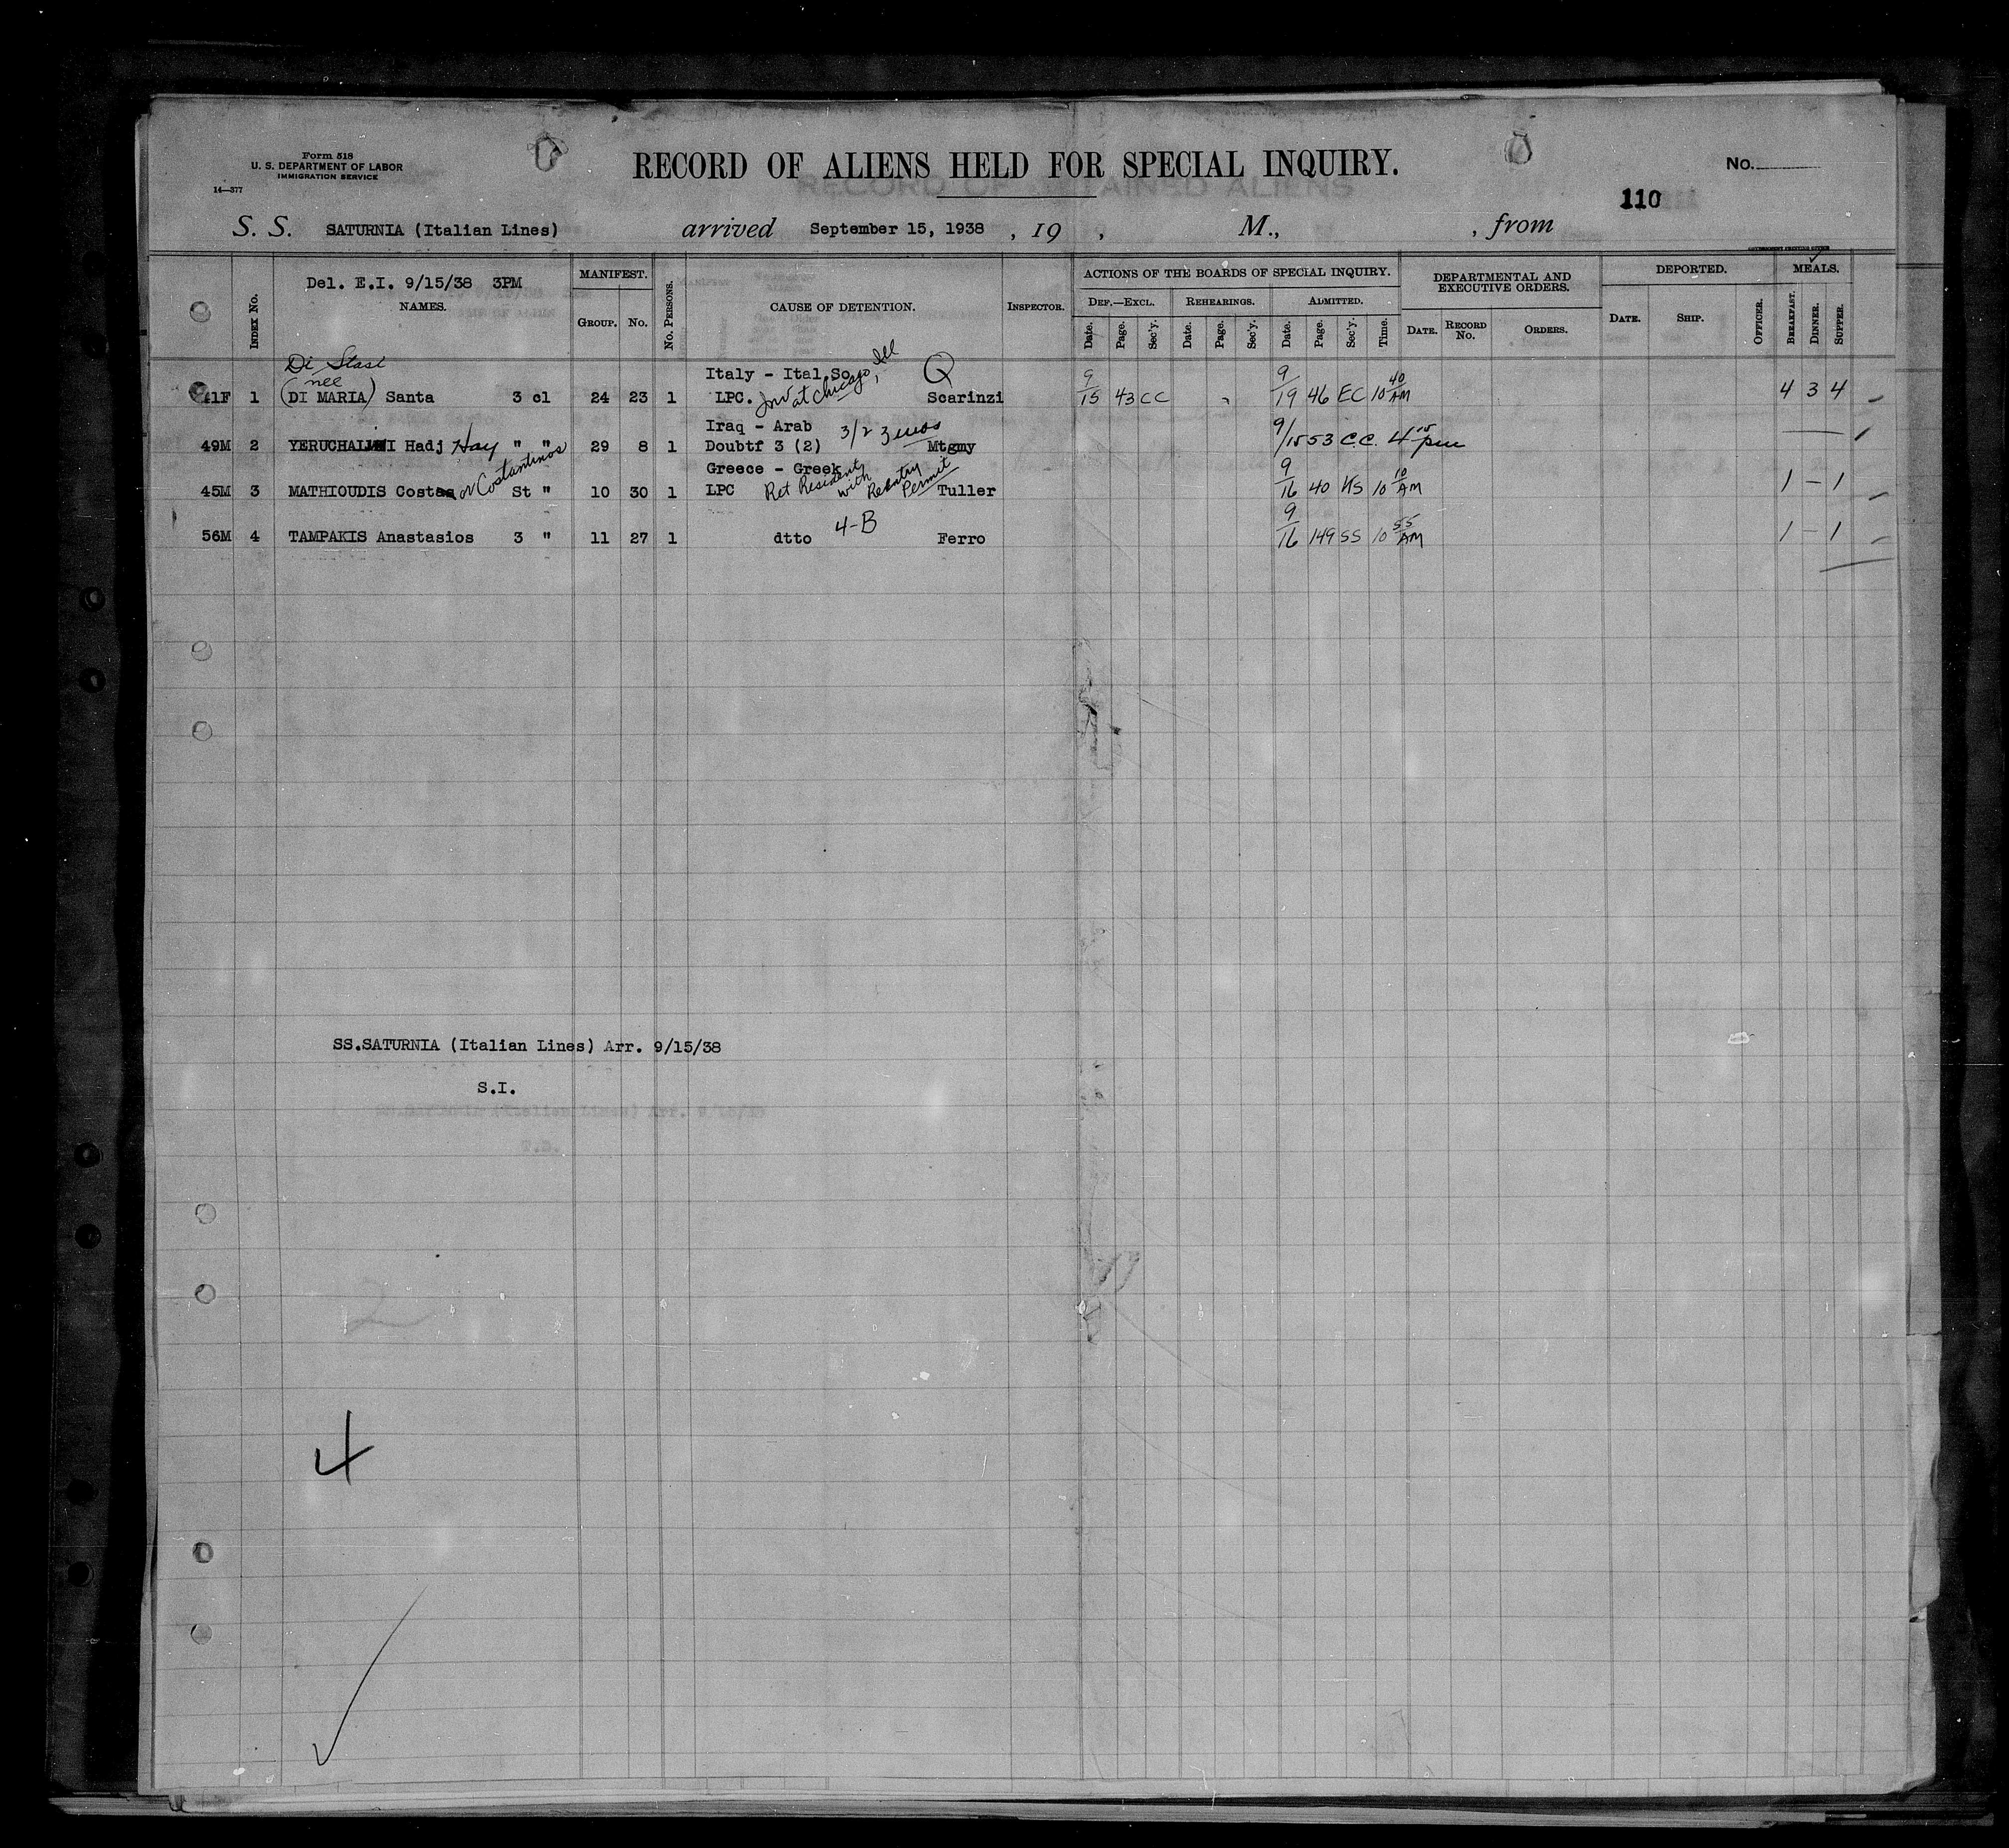 Form 518
U. S. DEPARTMENT OF LABOR
IMMIGRATION SERVICE
14—377
RECORD OF ALIENS HELD FOR SPECIAL INQUIRY.
No.
110
S. S. SATURNIA (Italian Lines) arrived September 15, 1938 , 19 , M., , from
GOVERNMENT PRINTING OFFICE
Del. E.I. 9/15/38 3PM
INDEX No. NAMES. MANIFEST. GROUP. No. No. PERSONS. CAUSE OF DETENTION. INSPECTOR.
ACTIONS OF THE BOARDS OF SPECIAL INQUIRY.
DEF.—EXCL. REHEARINGS. ADMITTED.
Date. Page. Sec'y. Date. Page. Sec'y. Date. Page. Sec'y. Time.
DEPARTMENTAL AND EXECUTIVE ORDERS.
DATE. RECORD No. ORDERS.
DEPORTED.
DATE. SHIP. OFFICER.
MEALS.
BREAKFAST. DINNER. SUPPER.
Di Stasi
nee
Italy - Ital.So Q
41F 1 (DI MARIA) Santa 3 cl 24 23 1 LPC. at Chicago, Ill Scarinzi 9/15 43 CC 9/19 46 EC 10 40 AM 4 3 4
Iraq - Arab
49M 2 Hadj Hay " " 29 8 1 Doubtf 3 (2) 3/2 3 mos Mtgmy 9/15 53 C.C. 4 15 pm
Greece - Greek
45M 3 MATHIOUDIS Costas or Costantinos St " 10 30 1 LPC Ret Resident with Reentry Permit Tuller 9/16 40 KS 10 10 AM 1 — 1
56M 4 TAMPAKIS Anastasios 3 " 11 27 1 dtto 4-B Ferro 9/16 149 SS 10 55 AM 1 — 1
SS.SATURNIA (Italian Lines) Arr. 9/15/38
S.I.
4